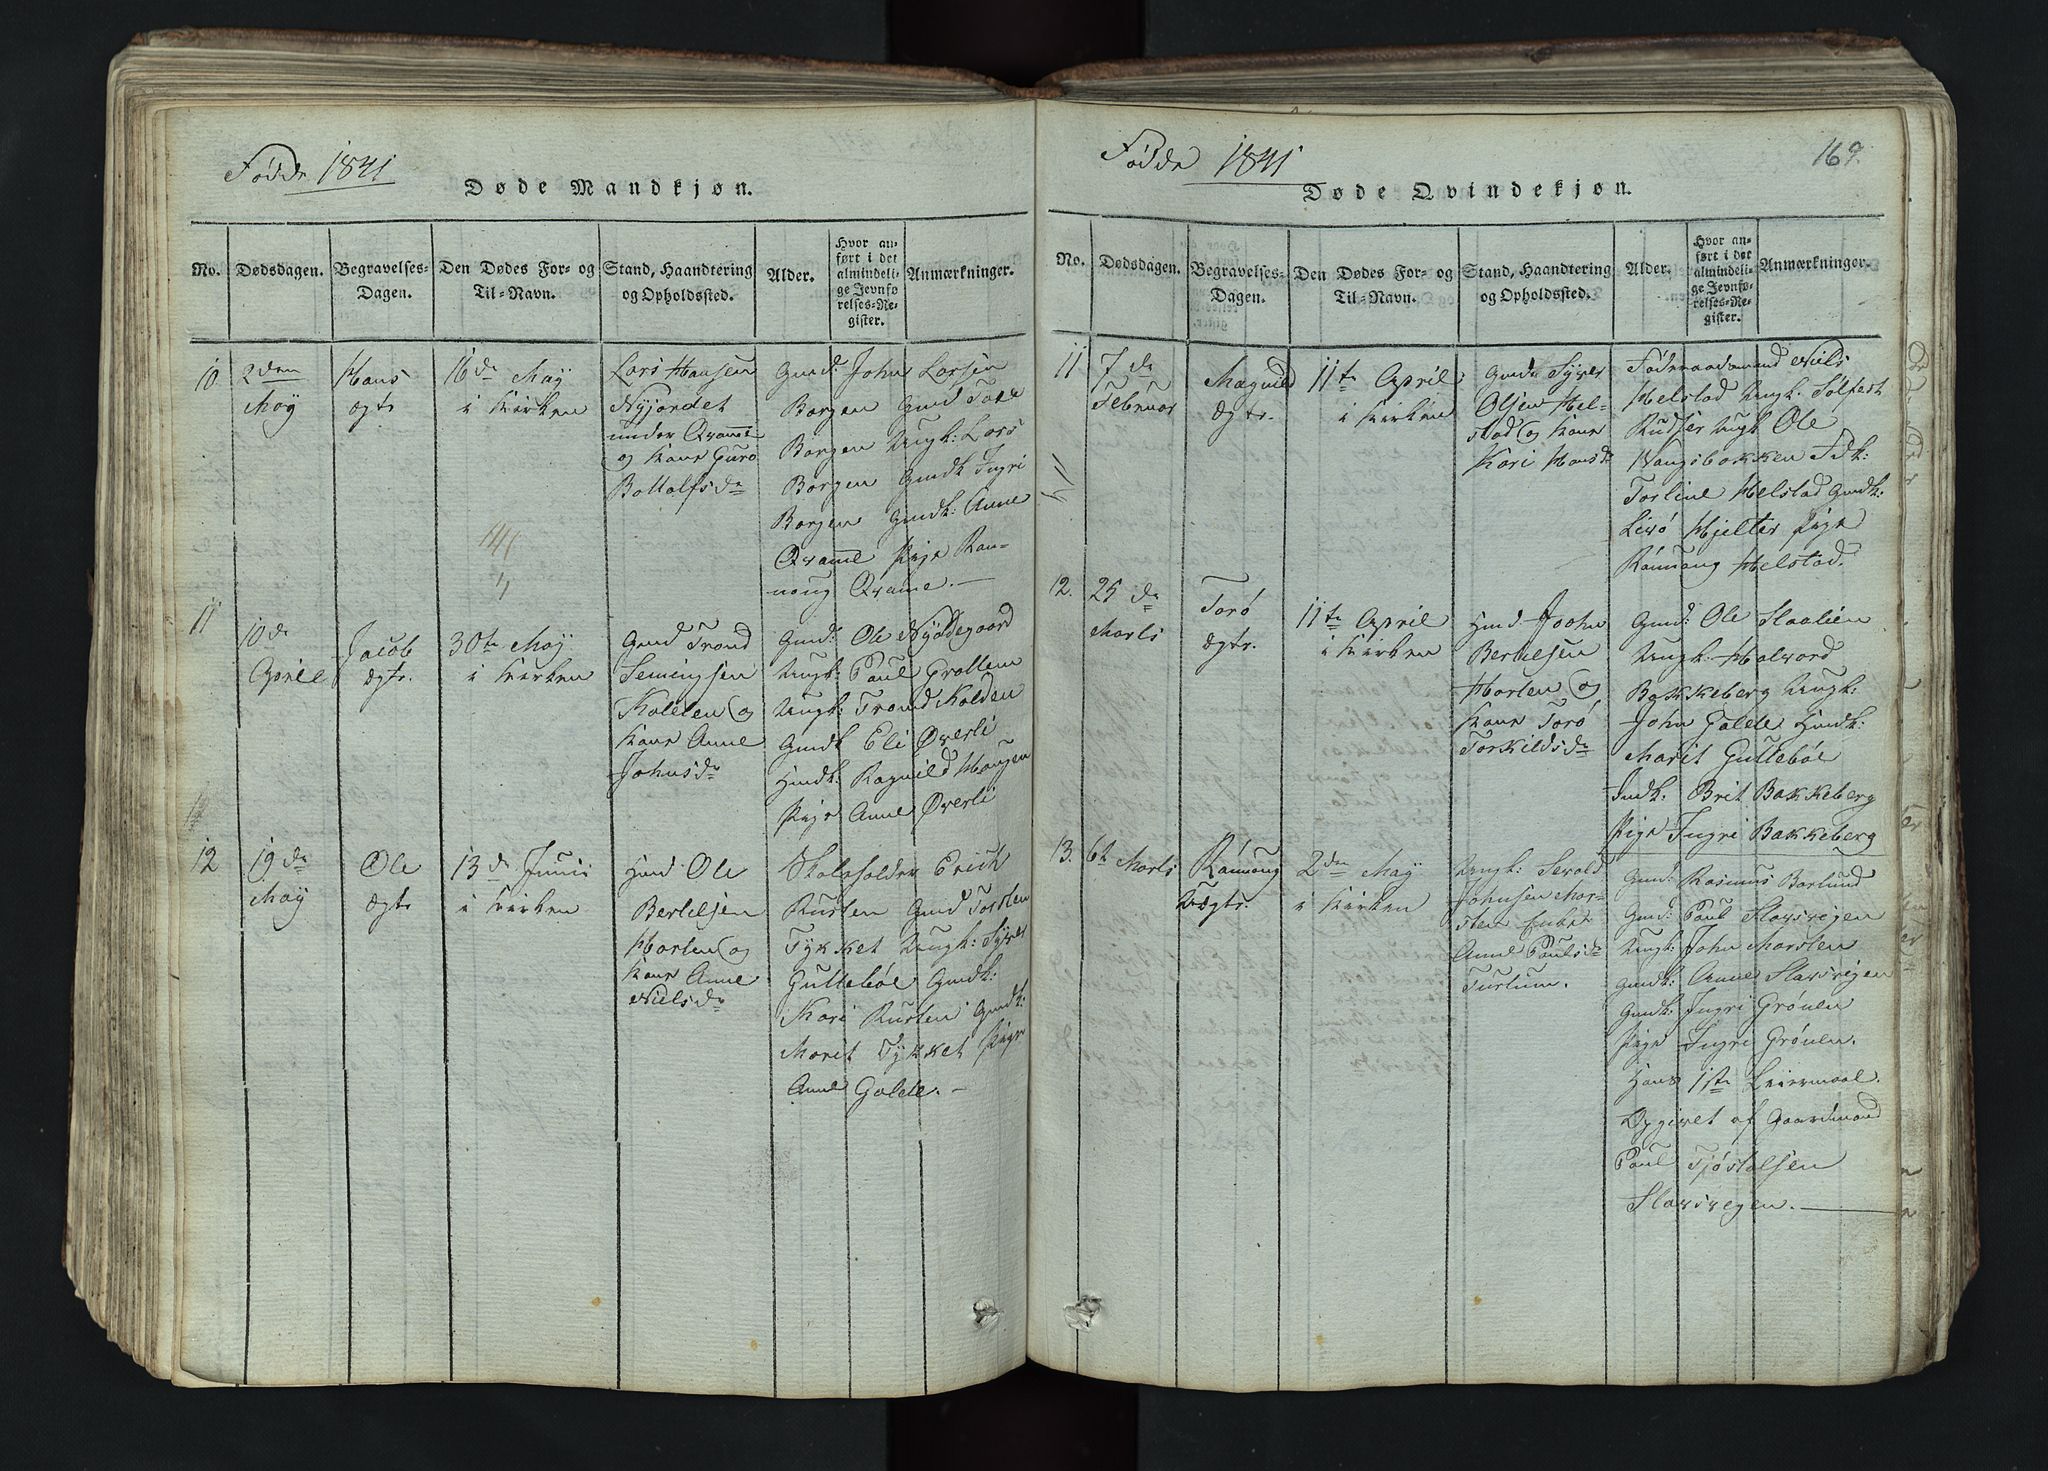 Fødde 1841
Døde Mandkjøn.
No.
Dødsdagen.
Begravelses-
Dagen.
Den Dødes For- og
Til-Navn.
Stand, Haandtering
og Opholdssted.
Alder.
Hvor an-
ført i det
almindeli-
ge Jevnfø
relses-Re-
gister.
Anmærkninger.
10
2den
May
Hans
ægte
16de May
i Kirken
Lars Hansen
Nyjordet
under Qvamme
og Kone Guro
Bottolfsdr
Gmd: John Larsen
Borgen Gmd Tore
Borgen Ungk: Lars
Borgen Gmdk Ingri
Borgen Gmdk: Anne
Qvamme Pige Ran-
noug Qvame. —
11
10de
April
Jacob
ægte.
30te May
i Kirken
Gmd Trond
Semingsen
Kolden og
Kone Anne
Johnsdr
Gmd: Ole Nyødegaard
Ungk: Paul Grottem
Ungk: Trond Kolden
Gmdk Eli Øverli
Hmdk: Ragnild Haugen
Pige Anne Øverli
12
19de
May
Ole
ægte
13de Junii
i Kirken
Hmd Ole
Bertelsen
Horten og
Kone Anne
Nielsdr
Skoleholder Erich
Rusten Gmd Torsten
Tykket Ungk: Syver
Guttebøe Gmdk:
Kari Rusten Gmdk:
Marit Tykket Pige
Anne Galde. —
Fødde 1841
169.
Døde Qvindekjøn.
No.
Dødsdagen.
Begravelses-
Dagen.
Den Dødes For- og
Til-Navn.
Stand, Haandtering
og Opholdssted.
Alder.
Hvor an-
ført i det
almindeli-
ge Jevnfø-
relses-Re-
gister.
Anmærkninger.
11
7de
Februar
Magnild
ægte.
11te April
i Kirken
Gmd Syver
Olsen Hel-
stad og Kone
Kari Hansdr
Føderaadsmand Niels
Helstad Ungk. Solfest
Rudser Ungk Ole
Vangsbakken Fdk:
Torline Helstad Gmdk:
Livø Hjelter Pige
Rannoug Helstad.
12.
25de
Marts
Torø
ægte.
11te April
i Kirken
Hmd John
Bertelsen
Horten og
Kone Torø
Torkildsdr
Gmd: Ole Staalien
Ungk: Halvord
Bakkeberg Ungk:
John Galde Hmdk:
Marit Guttebøe
Imdk: Brit Bakkeberg
Pige Ingri Bakkeberg
13.
6te Marts
Rannoug
Uægte.
2den May
i Kirken
Ungk: Sevald
Johnsen Mar-
sten Enke
Anne Paulsdr
Turtum.
Gmd: Rasmus Barlund
Gmd: Paul Slarsvigen
Ungk: John Marsten
Gmdk: Anne Slarsvigen
Gmdk: Ingri Grønen
Pige Ingri Grønen.
Hans 1ste Leiermaal.
Opgivet af Gaardmand
Paul Tjøstolsen
Slarsvegen. —